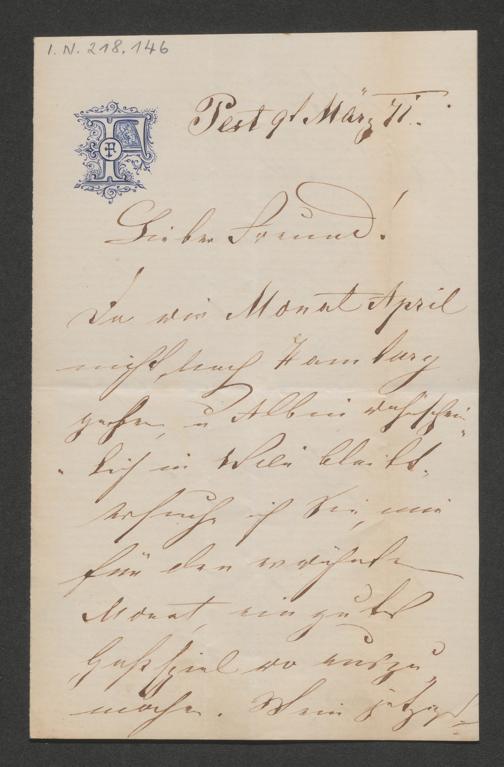 I. N. 218.146
Pest 9t März 71.
Lieber Freund!
Da wir Monat April
nicht nach Hamburg
gehen, u Albin wahrschein„
„lich in Wien bleibt,
ersuche ich Sie, mir
für den erwähnten
Monat, ein gutes
Gastspiel wo auszu„
machen. Mein jetzig